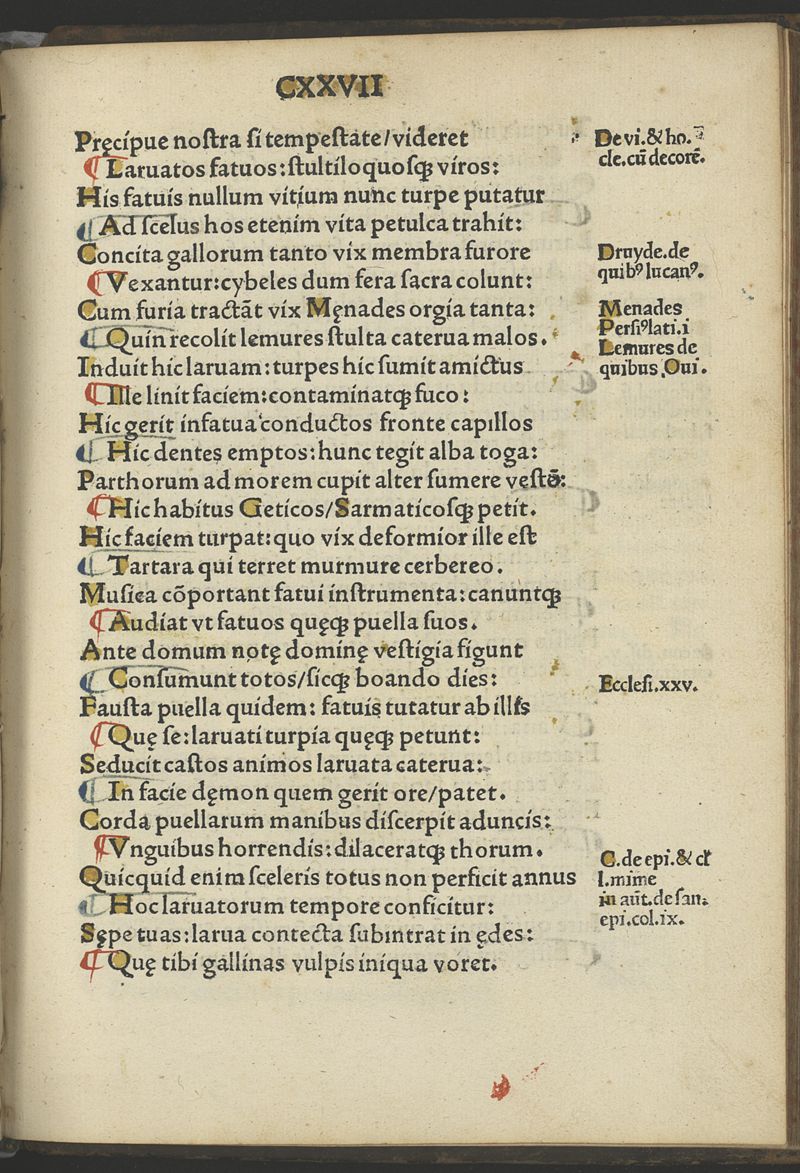 CXXVII
Pręcipue noſtra ſi tempeſtate/videret
¶ Laruatos fatuos:ſtultiloquoſqꝫ viros:
His fatuis nullum vitium nunc turpe putatur
¶ Ad ſcelus hos etenim vita petulca trahit:
Concita gallorum tanto vix membra furore
¶ Vexantur:cybeles dum fera ſacra colunt:
Cum furia tractāt vix Męnades orgia tanta:
¶ Quin recolit lemures ſtulta caterua malos.
Induit hic laruam:turpes hic ſumit amictus
¶ Ille linit faciem:contaminatqꝫ fuco:
Hic gerit infatua conductos fronte capillos
¶ Hic dentes emptos:hunc tegit alba toga:
Parthorum ad morem cupit alter ſumere veſtē:
¶ Hic habitus Geticos/Sarmaticoſqꝫ petit.
Hic faciem turpat:quo vix deformior ille eſt
¶ Tartara qui terret murmure cerbereo.
Muſica cōportant fatui inſtrumenta:canuntqꝫ
¶ Audiat vt fatuos quęqꝫ puella ſuos.
Ante domum notę dominę veſtigia figunt
¶ Conſumunt totos/ſicqꝫ boando dies:
Fauſta puella quidem: fatuis tutatur ab illis
¶ Quę ſe:laruati turpia quęqꝫ petunt:
Seducit caſtos animos laruata caterua:
¶ In facie dęmon quem gerit ore/patet.
Corda puellarum manibus diſcerpit aduncis:
¶ Vnguibus horrendis:dilaceratqꝫ thorum.
Quicquid enim ſceleris totus non perficit annus
¶ Hoc laruatorum tempore conficitur:
Sępe tuas:larua contecta ſubintrat in ędes:
¶ Quę tibi gallinas vulpis iniqua voret.
De vi.& ho.
cle.cū decorē.
Druyde.de
quibꝰ lucanꝰ.
Menades
Perſiꝰ ſati.i
Lemures de
quibus.Oui.
Eccleſi.xxv.
C.de epi.& cł
l.mime
in aūt.de ſan.
epi.col.ix.